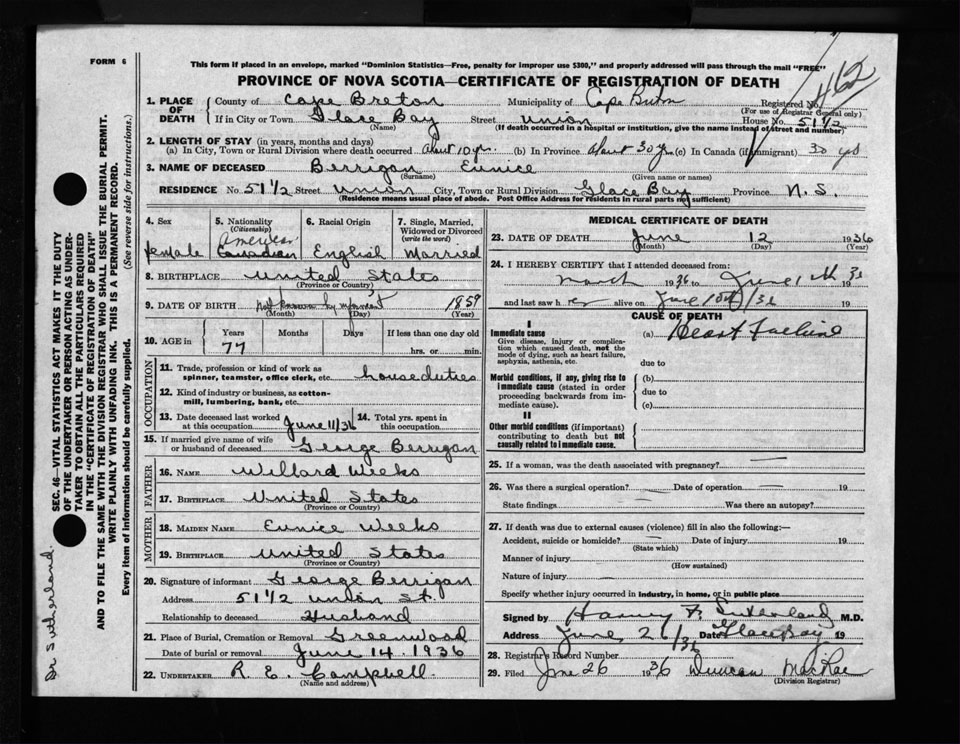 FORM 6
This form if placed in an envelope, marked "Dominion Statistics—Free, penalty for improper use $300," and properly addressed will pass through the mail "FREE"
PROVINCE OF NOVA SCOTIA—CERTIFICATE OF REGISTRATION OF DEATH
462
1. PLACE OF DEATH
County of Cape Breton Municipality of Cape Breton Registered No.
(For use of Registrar General only)
If in City or Town Glace Bay Street Union House No. 51 1/2
(Name) (If death occurred in a hospital or institution, give the name instead of street and number)
2. LENGTH OF STAY (in years, months and days)
(a) In City, Town or Rural Division where death occurred about 10 yr. (b) In Province about 30 y. (c) In Canada (if immigrant) 30 yrs
3. NAME OF DECEASED Berrigan Eunice
(Surname) (Given name or names)
RESIDENCE No. 51 1/2 Street Union City, Town or Rural Division Glace Bay Province N. S.
(Residence means usual place of abode. Post Office Address for residents in rural parts not sufficient)
4. Sex
Female
5. Nationality
(Citizenship)
American
Canadian
6. Racial Origin
English
7. Single, Married, Widowed or Divorced
(write the word)
Married
8. BIRTHPLACE United States
(Province or Country)
9. DATE OF BIRTH not known by informant 1859
(Month) (Day) (Year)
10. AGE in Years Months Days If less than one day old
77 hrs. or min.
OCCUPATION
11. Trade, profession or kind of work as spinner, teamster, office clerk, etc. house duties
12. Kind of industry or business, as cotton-mill, lumbering, bank, etc.
13. Date deceased last worked at this occupation June 11/36
14. Total yrs. spent in this occupation
15. If married give name of wife or husband of deceased George Berrigan
FATHER
16. NAME Willard Weeks
17. BIRTHPLACE United States
(Province or Country)
MOTHER
18. MAIDEN NAME Eunice Weeks
19. BIRTHPLACE United States
(Province or Country)
20. Signature of informant George Berrigan
Address 51 1/2 Union St.
Relationship to deceased Husband
21. Place of Burial, Cremation or Removal Greenwood
Date of burial or removal June 14. 1936
22. UNDERTAKER R. E. Campbell
(Name and address)
MEDICAL CERTIFICATE OF DEATH
23. DATE OF DEATH June 12 1936
(Month) (Day) (Year)
24. I HEREBY CERTIFY that I attended deceased from:
March 1936 to June 19
and last saw her alive on June 19
CAUSE OF DEATH
I
Immediate cause
Give disease, injury or complication which caused death, not the mode of dying, such as heart failure, asphyxia, asthenia, etc.
(a) Heart Failure
due to
Morbid conditions, if any, giving rise to immediate cause (stated in order proceeding backwards from immediate cause).
(b)
due to
(c)
II
Other morbid conditions (if important) contributing to death but not causally related to immediate cause.
25. If a woman, was the death associated with pregnancy?
26. Was there a surgical operation? Date of operation 19
State findings Was there an autopsy?
27. If death was due to external causes (violence) fill in also the following:—
Accident, suicide or homicide? Date of injury 19
(State which)
Manner of injury
(How sustained)
Nature of injury
Specify whether injury occurred in industry, in home, or in public place
Signed by Harvey F. Sutherland M.D.
Address June 26/36 Date Glace Bay 19
28. Registrar's Record Number
29. Filed June 26 1936 Duncan MacRae
(Division Registrar)
SEC. 46—VITAL STATISTICS ACT MAKES IT THE DUTY
OF THE UNDERTAKER OR PERSON ACTING AS UNDER-
TAKER TO OBTAIN ALL THE PARTICULARS REQUIRED
IN THE "CERTIFICATE OF REGISTRATION OF DEATH"
AND TO FILE THE SAME WITH THE DIVISION REGISTRAR WHO SHALL ISSUE THE BURIAL PERMIT.
WRITE PLAINLY WITH UNFADING INK. THIS IS A PERMANENT RECORD.
Every item of information should be carefully supplied. (See reverse side for instructions.)
Dr Sutherland.